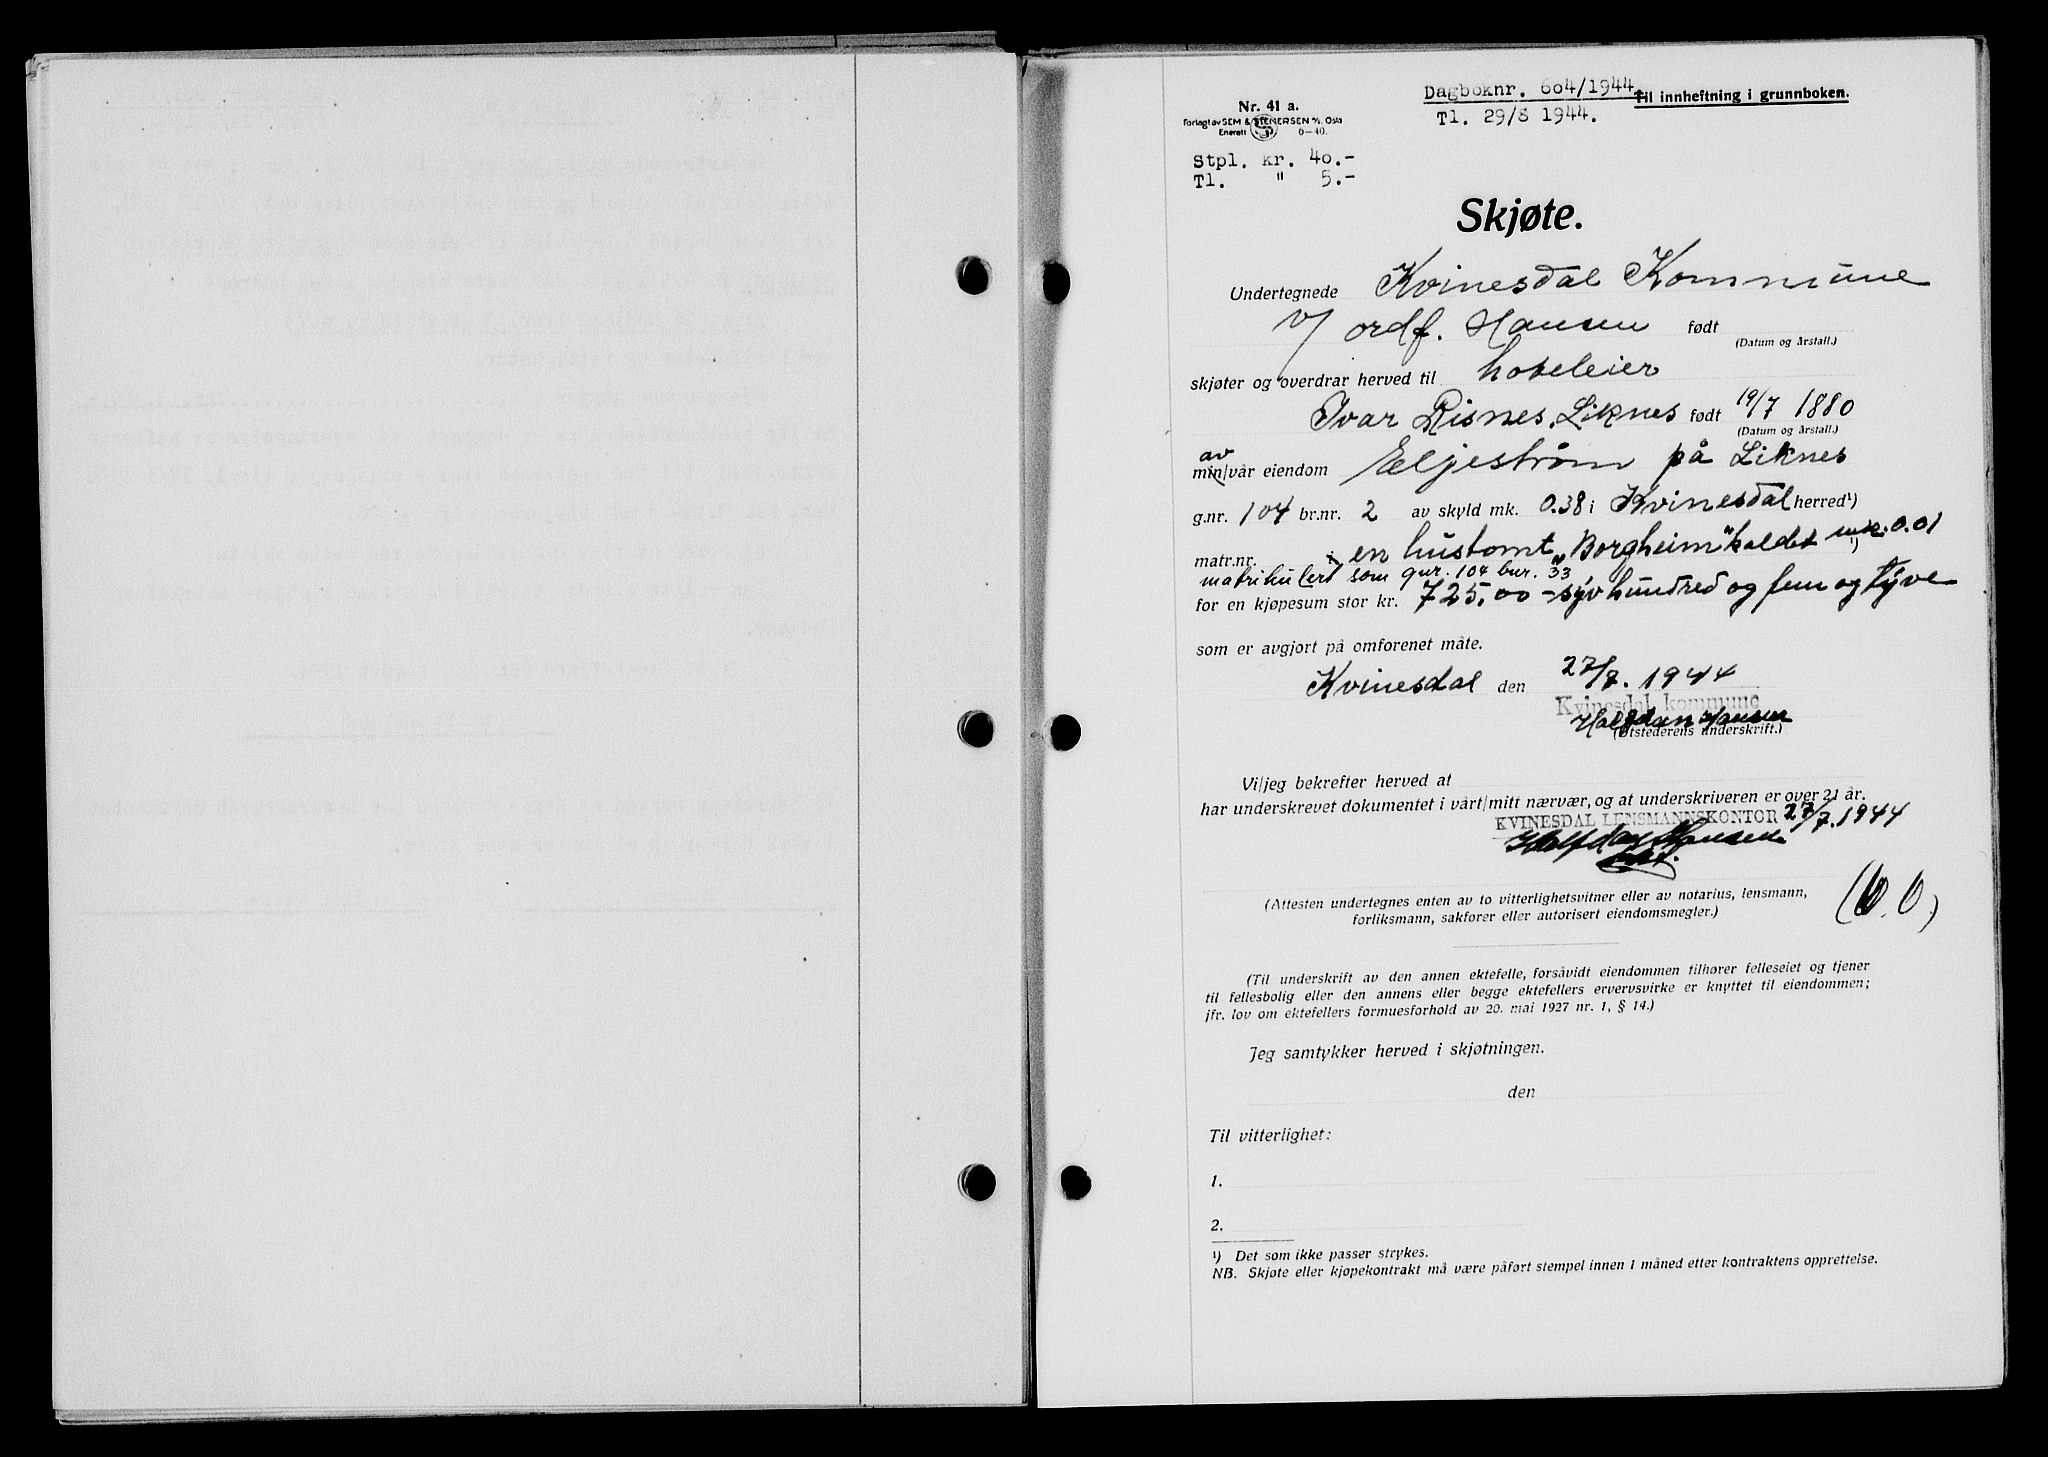 Nr. 41 a.
Forlagt av SEM & STENERSEN A/S, Oslo
Enerett 6-40.
Dagboknr. 604/1944.
Til innheftning i grunnboken.
Tl. 29/8 1944.
Stpl. kr. 40.-
Tl. " 5.-
Skjøte.
Undertegnede Kvinesdal Kommune
v/ ordf. Hansen født
(Datum og årstall.)
skjøter og overdrar herved til hoteleier
Ivar Risnes, Liknes født 19/7 1880
(Datum og årstall.)
av
min/vår eiendom Eljestrøm på Liknes
g.nr. 104 br.nr. 2 av skyld mk. 0.38 i Kvinesdal herred¹)
matr.nr. i en hustomt „Borgheim" kaldet mk. 0.01 ¹)
matrikulert som gnr. 104 bnr. 33
for en kjøpesum stor kr. 725,00 - syvhundred og fem og tyve
som er avgjort på omforenet måte.
Kvinesdal den 27/7. 1944
Kvinesdal kommune
Halfdan Hansen
(Utstederens underskrift.)
Vi/jeg bekrefter herved at
har underskrevet dokumentet i vårt/mitt nærvær, og at underskriveren er over 21 år.
KVINESDAL LENSMANNSKONTOR 27/7. 1944
Halfdan Hansen
(Attesten undertegnes enten av to vitterlighetsvitner eller av notarius, lensmann,
forliksmann, sakfører eller autorisert eiendomsmegler.)
(Til underskrift av den annen ektefelle, forsåvidt eiendommen tilhører felleseiet og tjener
til fellesbolig eller den annens eller begge ektefellers ervervsvirke er knyttet til eiendommen;
jfr. lov om ektefellers formuesforhold av 20. mai 1927 nr. 1, § 14.)
Jeg samtykker herved i skjøtningen.
den
Til vitterlighet:
1.
2.
¹) Det som ikke passer strykes.
NB. Skjøte eller kjøpekontrakt må være påført stempel innen 1 måned etter kontraktens opprettelse.